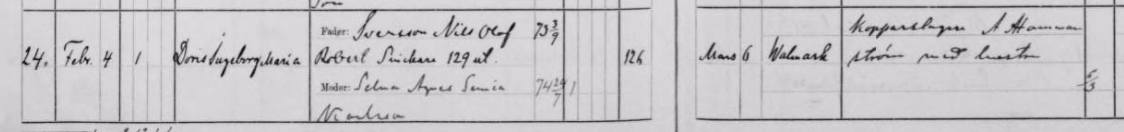 24. Febr. 4 1 Doris Ingeborg Maria
Fader: Svensson Nils Olof 73 3/9
Robert Snickare 129 ut. 126
Moder: Selma Agnes Senia 74 24/7 1
Karlsson
Mars 6 Walmark
Kopparslagare A Hammar
ström med hustru
5/3